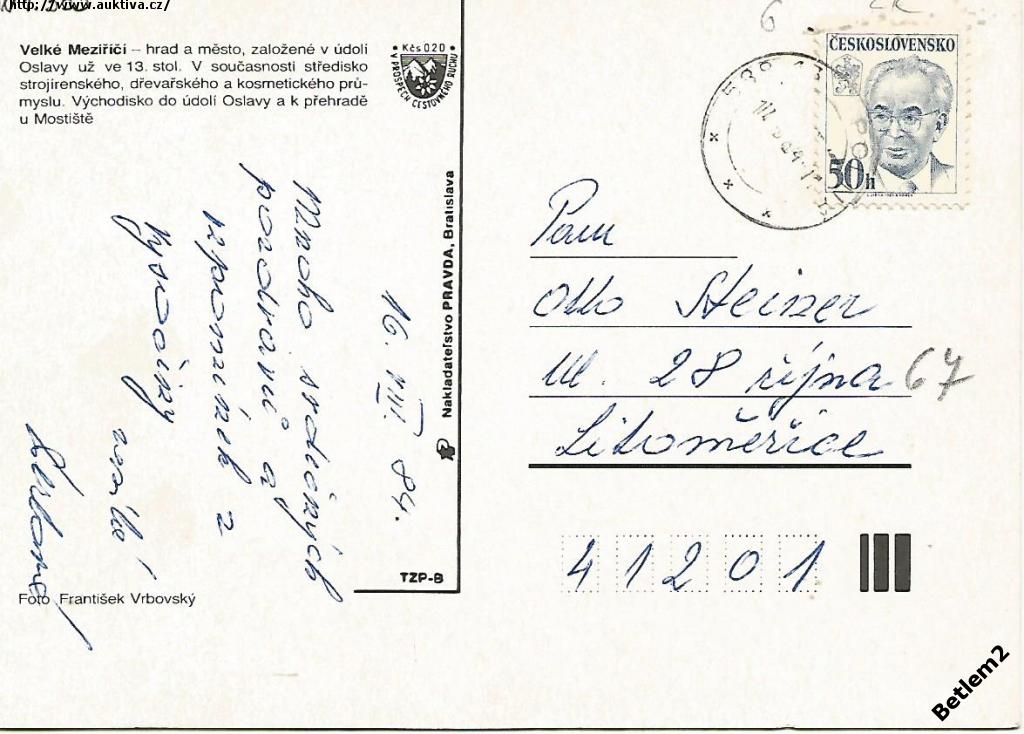 http://www.auktiva.cz/
Velké Meziříčí – hrad a město, založené v údolí
Oslavy už ve 13. stol. V současnosti středisko
strojírenského, dřevařského a kosmetického prů-
myslu. Východisko do údolí Oslavy a k přehradě
u Mostiště
Kčs 020
V PROSPĚCH CESTOVNÉHO RUCHU
16. VIII. 84.
Mnoho srdečných
pozdravů a
vzpomínek z
Vysočiny
Nakladateľstvo PRAVDA, Bratislava
TZP-B
Foto František Vrbovský
6
ČESKOSLOVENSKO
50h
Pan
Otto Steiner
Ul. 28 října 67
Litoměřice
41201
Betlem2